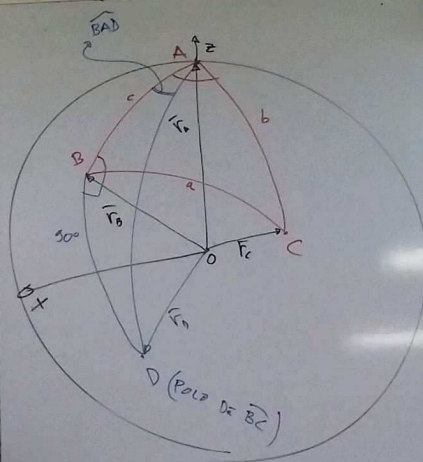 BAD
A
z
c
b
r̄A
B
a
r̄B
90°
O
r̄C
C
X
r̄D
D (POLO DE BC)